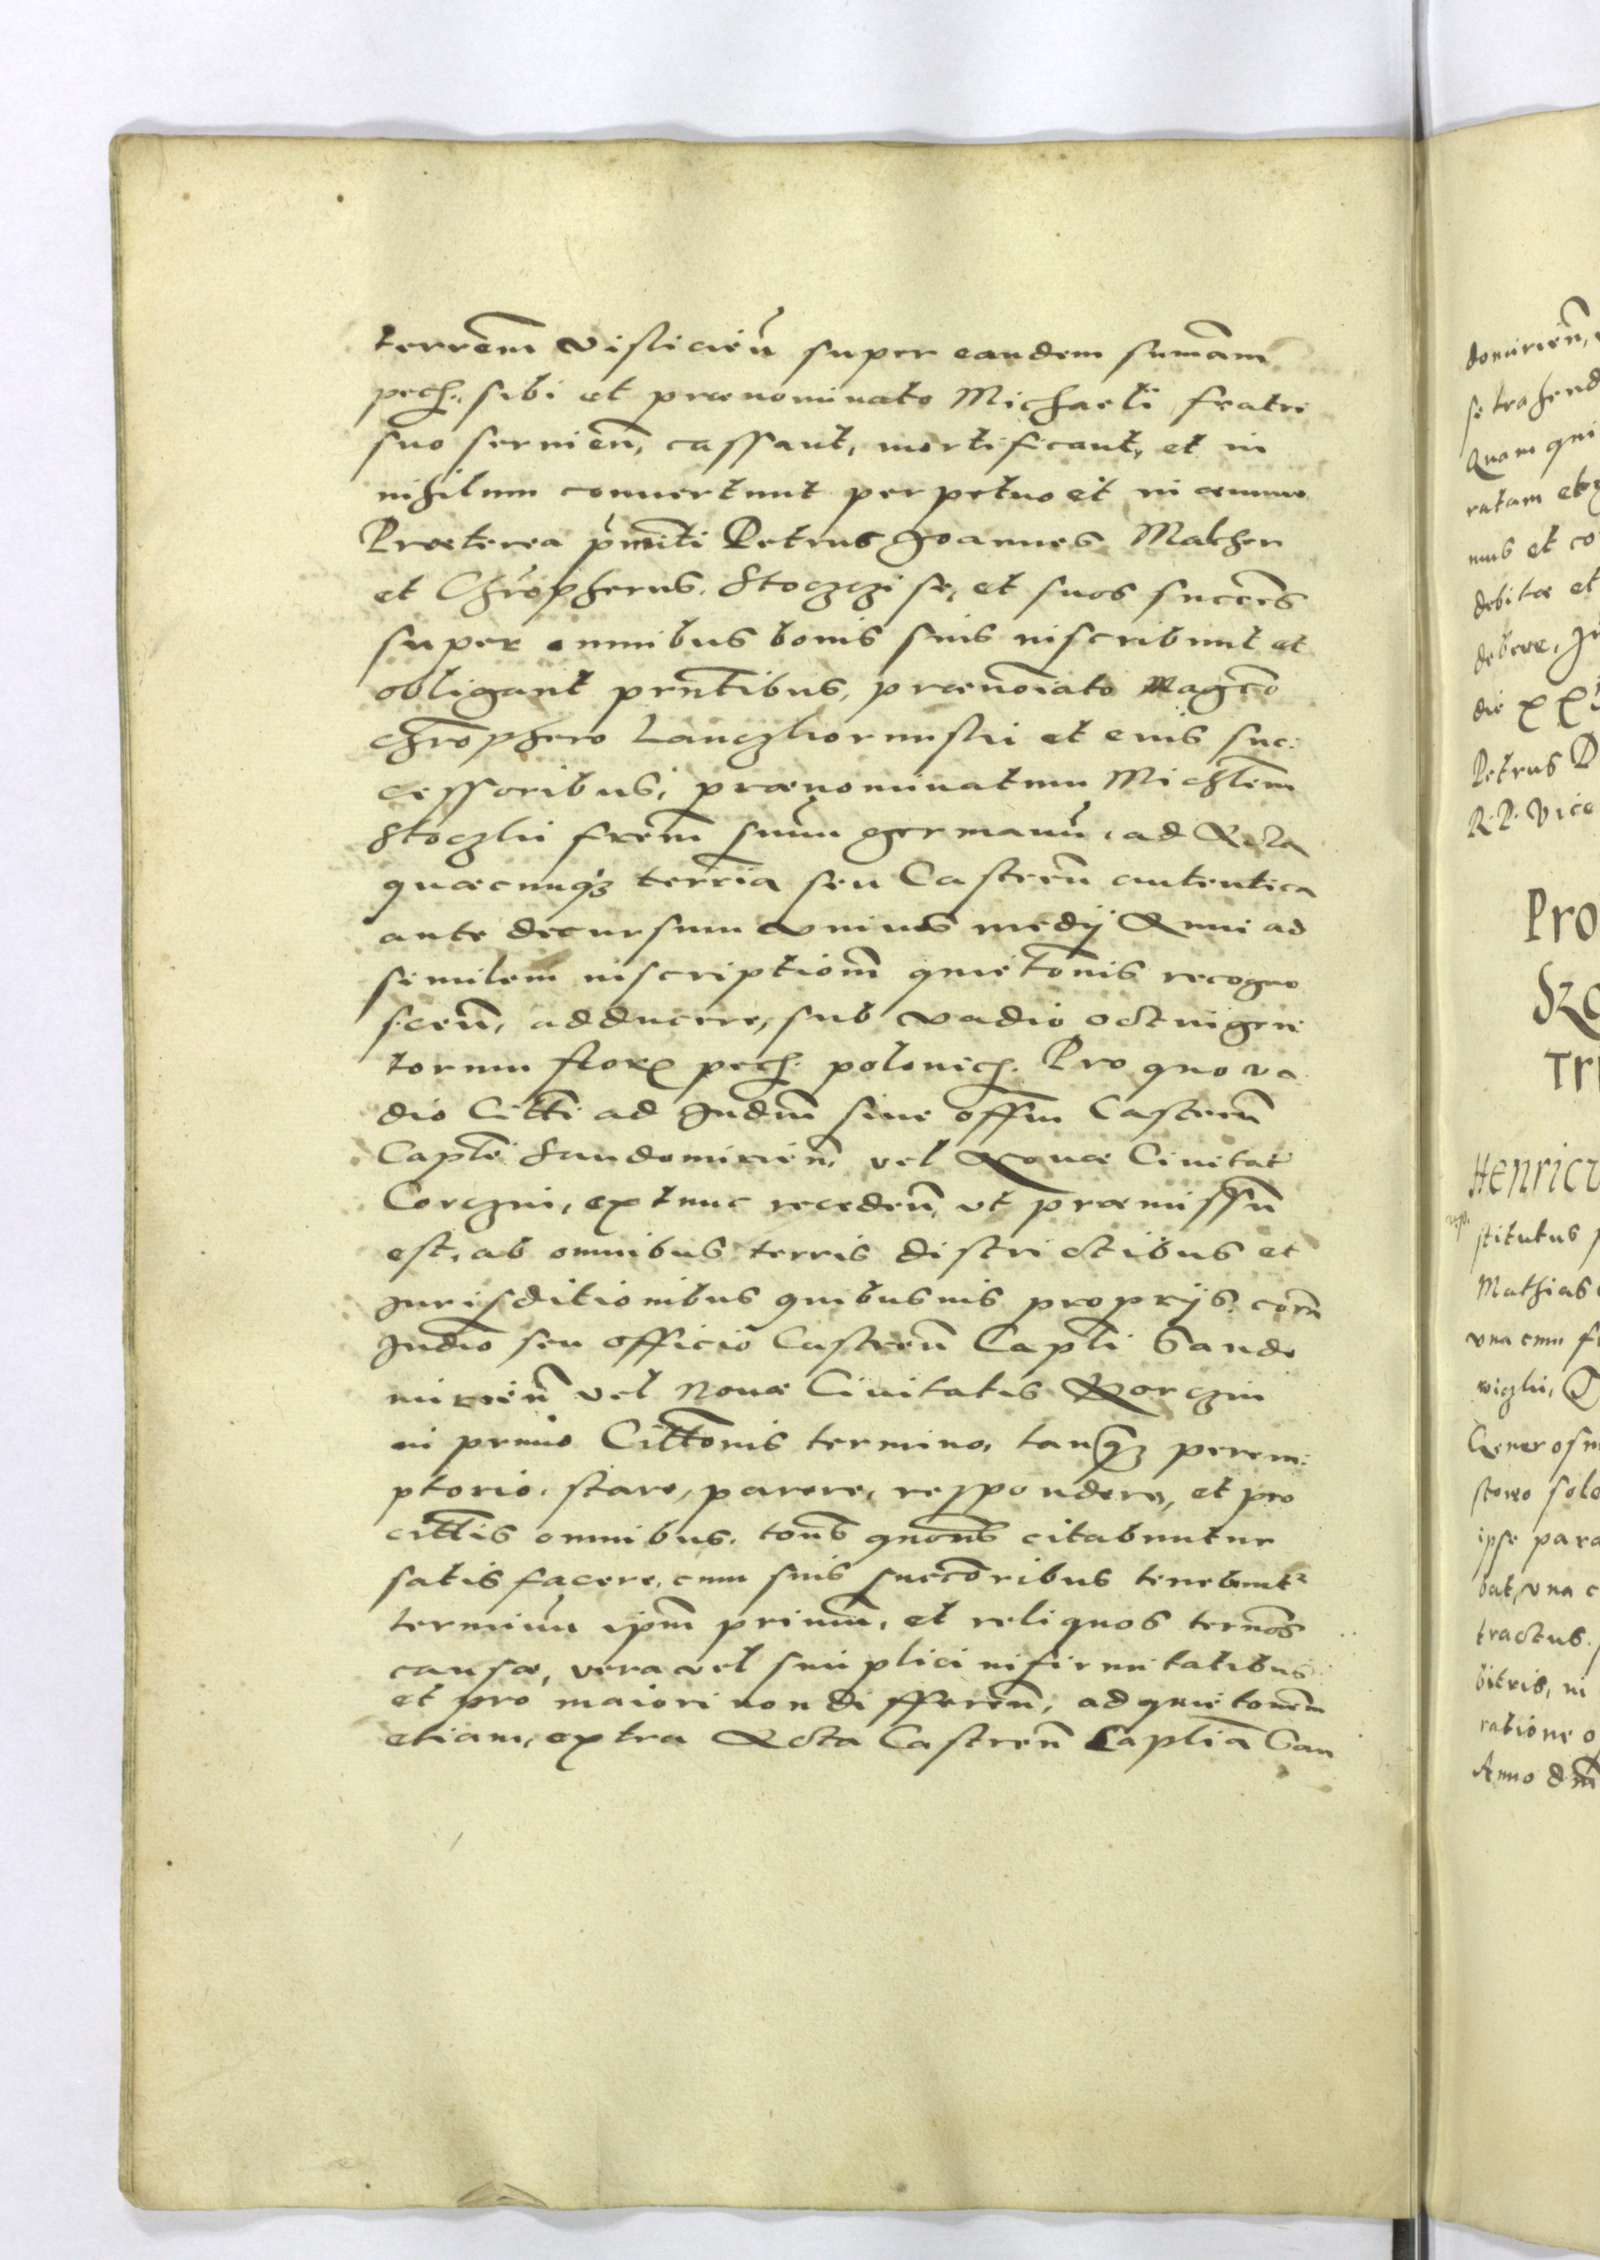 terrēm Visliciēn̄ super eandem sum̄am
pech., sibi et prænominato Michaeli fratri
suo seruien̄, cassant, mortificant, et in
nihilum conuertunt perpetuo et in æuum
Præterea p̄miss̄i Petrus Joannes Malcher
et Chr̄opherus. Stoczgi se, et suos success̄
super omnibus bonis suis inscribunt et
obligant pr̄ntibus, præno͞iato Mag͞co
Chr̄ophero Lanczkor et eius suc:
cessoribus, prænominatum Mich͞lem
Stoczki fr͞em suum germanū, ad Acta
quæcunq₃ terr͞ia seu Castren̄ autentica
ante decursum vnius medij Anni ad
similem inscriptiom̄ quietōnis recogno
scen̄, adducere, sub vadio octuigen
torum flor pech. polonich. Pro quo va
dio Citt͞i ad Jud͞m siue off͞m Castren̄
Capt͞le Sandomirien̄, vel Nouæ Ciuitat
Corczin, extunc receden̄, vt præmissū
est, ab omnibus terris districtibus et
Jurisditionibus quibusuis proprijs. cor͞m
Jud͞io seu officio Castren̄ Capt͞li Sando
mirien̄ vel Nouæ Ciuitatis Korczin
in primo Citt͞onis termino, tanq₃ perem:
ptorio. stare, parere, respondere, et pro
citt͞is omnibus. to͞ns quo͞ns citabuntur
satisfacere, cum suis succ͞oribus tenebunt²
terminū ip͞m primum, et reliquos ter͞nos
causæ, vera vel simplici infirmitatibus
et pro maiori non differen̄, ad quietonem
etiam, extra Acta Castren̄ Capt͞lia San
donirien̄,
se trahend
Quam qui
ratam et
mus et co
debitæ et
debere, Ju
die XX
Petrus D
R. P. Vice
Pro
Tri
Henricu
stitutus
Mathias
vna cum f
Generosu
stowo sole
ipse para
bat, vna c
tractus.
bitris, in
ratione o
Anno d͞m